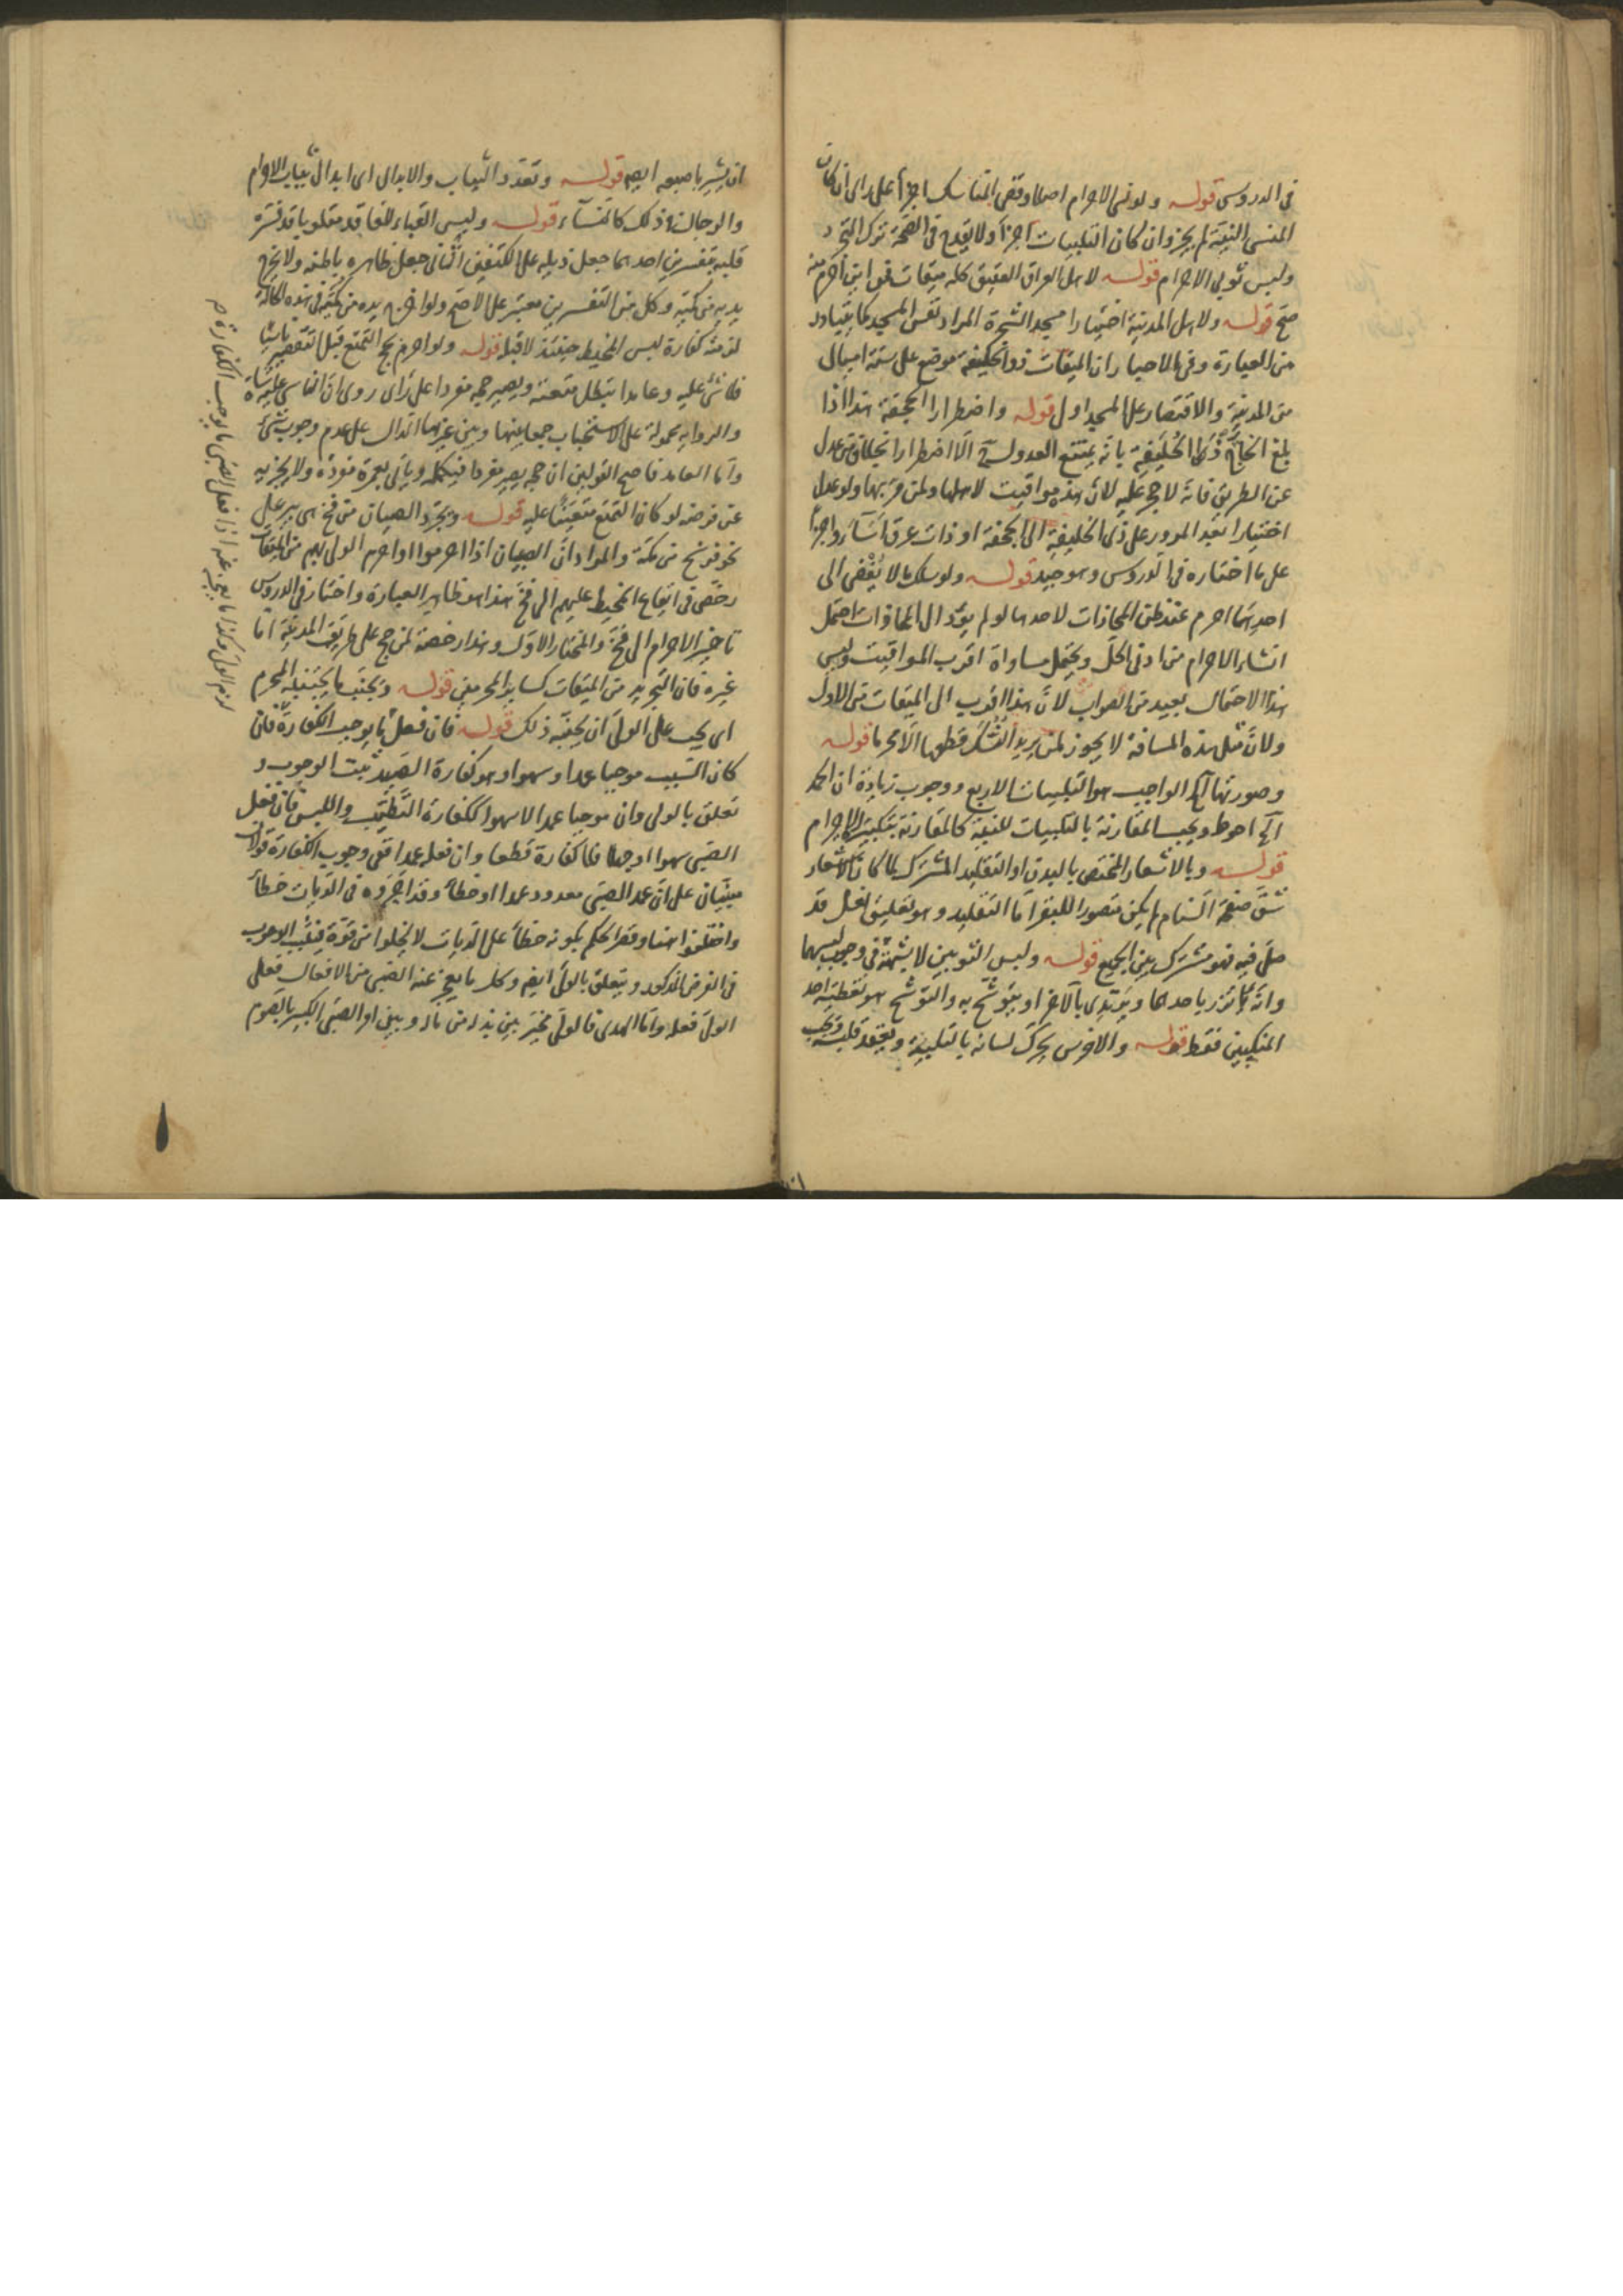 في الدروس قوله ولو نسي الاحرام اصلا وقضى المناسك اجزأ على راي ان كان
المنسي النية لم يجز وان كان التلبيات اجزأ ولا يقدح في الصحة ترك التجرد
وليس ثوبي الاحرام قوله لاهل العراق العقيق كله ميقات فمن اين احرم منه
صح قوله ولاهل المدينة اختيارا مسجد الشجرة المراد نفس المسجد كما يتبادر
من العبارة وفي الاخبار ان الميقات ذو الحليفة موضع على ستة اميال
من المدينة والاقتصار على المسجد اولى قوله واضطرارا الجحفة هذا اذا
بلغ الحاج ذا الحليفة بانه يمتنع العدول الا اضطرارا بخلاف من عدل
عن الطريق فانه لا حرج عليه لان هذه مواقيت لاهلها ولمن مر بها ولو عدل
اختيارا بعد المرور على ذي الحليفة الى الجحفة او ذات عرق اساء واجزأ
على ما اختاره في الدروس وهو جيد قوله ولو سلك ما لا يفضي الى
احدها احرم عند ظن المحاذات لاحدها لو لم يؤد الى المحاذات احتمل
انشاء الاحرام من ادنى الحل ويحتمل مساواة اقرب المواقيت وليس
هذا الاحتمال ببعيد من الصواب لان هذا اقرب الى الميقات من الاول
ولان مثل هذه المسافة لا يجوز لمن يريد النسك قطعها الا محرما قوله
وصورتها الخ الواجب هو التلبيات الاربع ووجوب زيادة ان الحمد
الخ احوط ويجب المقارنة بالتلبيات للنية كالمقارنة بتكبيرة الاحرام
قوله وبالاشعار المختص بالبدن او التقليد المشترك لما كان الاشعار
شق صفحة السنام لم يكن متصورا للبقر اما التقليد وهو تعليق نعل قد
صلى فيه فهو مشترك بين الجميع قوله ولبس الثوبين لا شبهة في وجوب لبسهما
وانه يأتزر باحدهما ويرتدي بالآخر او يتوشح به والتوشح هو تغطية احد
المنكبين فقط قوله والاخرس يحرك لسانه بالتلبية ويعقد قلبه ويجب
ان يشير باصبعه ايضا قوله وتعدد الثياب والابدال اي ابدال ثياب الاحرام
والرجال في ذلك كالنساء قوله ولبس القباء للفاقد مقلوبا قد فسر
قلبه بتفسيرين احدهما جعل ذيله على الكتفين الثاني جعل ظاهره باطنه ولا يخرج
يديه من كميه وكل من التفسيرين معتبر على الاصح ولو اخرج يده من كميه في هذه الحالة
لزمته كفارة لبس المخيط حينئذ لا قبله قوله ولو احرم بحج التمتع قبل التقصير ناسيا
فلا شيء عليه وعامدا تبطل متعته ويصير حجه مفردا على راي روي ان الناسي عليه شاة
والرواية محمولة على الاستحباب جمعا بينها وبين غيرها الدال على عدم وجوب شيء
واما العامد فاصح القولين ان حجه يصير مفردا فيكمله وياتي بعمرة مفردة ولا يجزيه
عن فرضه لو كان التمتع متعينا عليه قوله ويجرد الصبيان من فخ هي بئر على
نحو فرسخ من مكة والمراد ان الصبيان اذا احرموا او احرم الولي بهم من الميقات
رخص في ايقاع المخيط عليهم الى فخ هذا هو ظاهر العبارة واختار في الدروس
تاخير الاحرام الى فخ والمختار الاول وهذا رخصة لمن حج على طريق المدينة اما
غيره فان التجريد من الميقات كساير المحرمين قوله ويجنب ما يجتنبه المحرم
اي يجب على الولي ان يجنبه ذلك قوله فان فعل ما يوجب الكفارة فان
كان السبب موجبا عمدا وسهوا وهو كفارة الصيد ثبت الوجوب و
تعلق بالولي وان موجبا عمدا لا سهوا ككفارة التطيب واللبس فان فعل
الصبي سهوا او جهلا فلا كفارة قطعا وان فعله عمدا ففي وجوب الكفارة قولان
مبنيان على ان عمد الصبي معدود عمدا او خطأ وقد اجروه في الديات خطأ
واختلفوا هنا وقصر الحكم بكونه خطأ على الديات لا يخلوا من قوة فيثبت الوجوب
في الفرض المذكور ويتعلق بالولي ايضا وكل ما يعجز عنه الصبي من الافعال فعلى
الولي فعله واما الهدي فالولي مخير بين بذله من ماله وبين امر الصبي الكبير بالصوم
لزم الولي وكذا ما يعجز عنه اذا فعل الصبي ما يوجب الكفارة ص